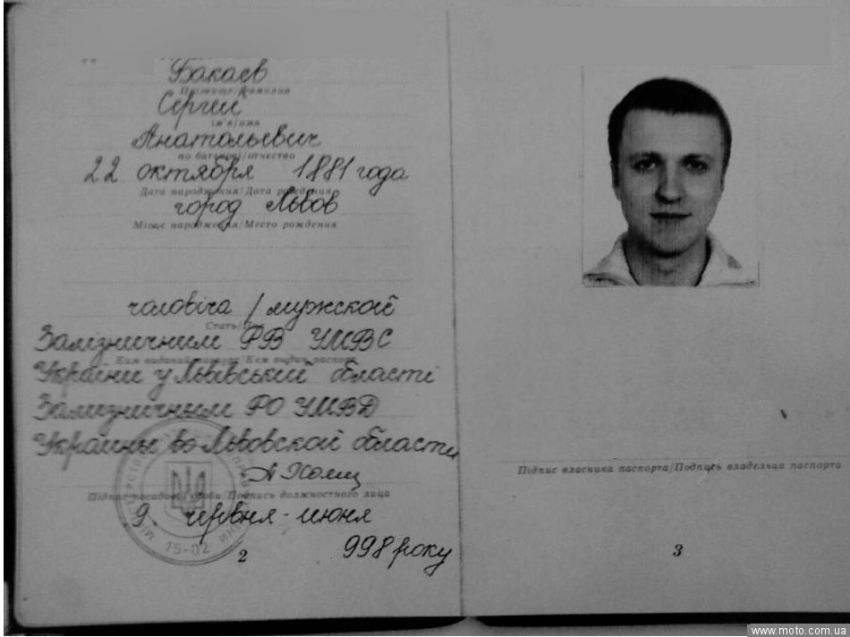 Бакаев
Прізвище/Фамилия
Сергей
ім'я/имя
Анатольевич
по батькові/отчество
22 октября 1881 года
Дата народження/Дата рождения
город Львов
Місце народження/Место рождения
чоловіча/мужской
Стать/
Залізничним РВ УМВС
Ким виданий паспорт/Кем выдан паспорт
України у Львівській області
Зализничным РО УМВД
Украины во Львовской области
Підпис посадової особи/Подпись должностного лица
9 червня-июня
998 року
15-02
2
Підпис власника паспорта/Подпись владельца паспорта
3
www.moto.com.ua